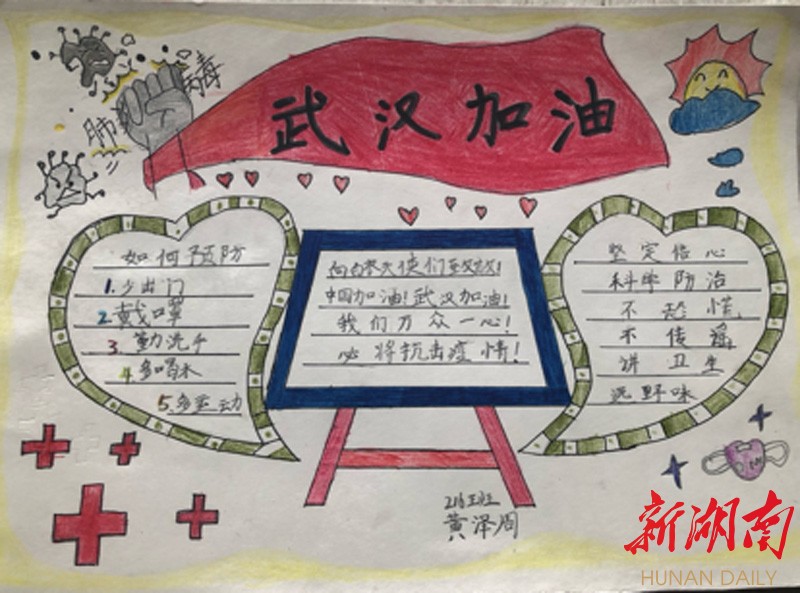 武汉加油
肺
病毒
如何预防
1.少出门
2.戴口罩
3.勤洗手
4.多喝水
5.多运动
向白衣天使们致敬!
中国加油!武汉加油!
我们万众一心!
必将抗击疫情!
坚定信心
科学防治
不恐慌
不传谣
讲卫生
远野味
216班
黄泽周
新湖南
HUNAN DAILY